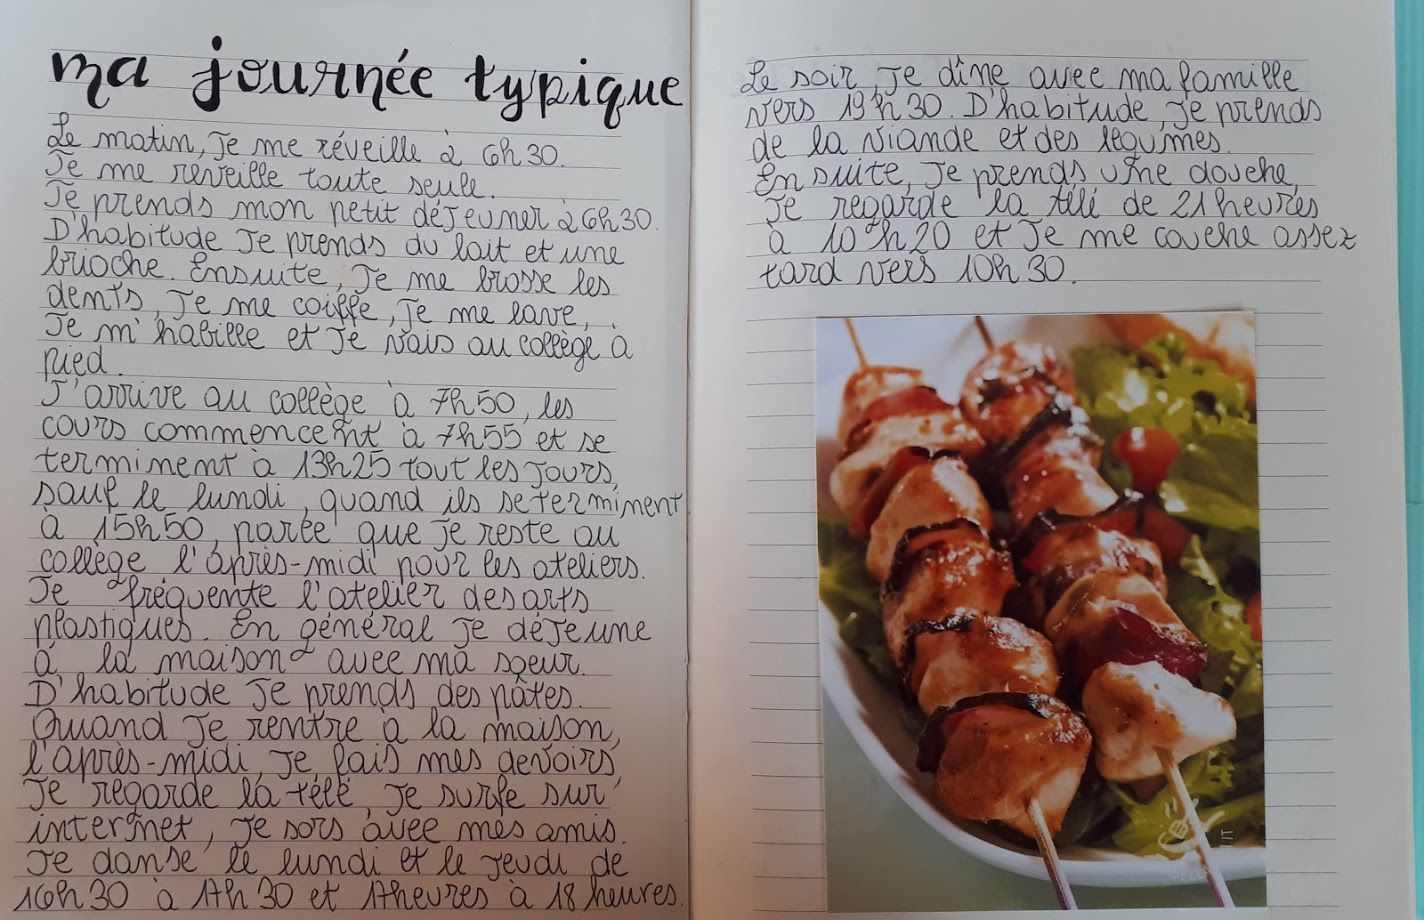 ma journée typique
Le matin, je me réveille à 6h30.
Je me reveille toute seule.
Je prends mon petit déjeuner à 6h30.
D'habitude je prends du lait et une
brioche. Ensuite, je me brosse les
dents, je me coiffe, je me lave,
je m'habille et je vais au collège à
pied.
J'arrive au collège à 7h50, les
cours commencent à 7h55 et se
terminent à 13h25 tout les jours,
sauf le lundi, quand ils se terminent
à 15h50, parce que je reste au
collège l'après-midi pour les ateliers.
Je fréquente l'atelier des arts
plastiques. En général je déjeune
à la maison avec ma sœur.
D'habitude je prends des pâtes.
Quand je rentre à la maison,
l'après-midi, je fais mes devoirs,
je regarde la télé, je surfe sur
internet, je sors avec mes amis.
Je danse le lundi et le jeudi de
16h30 à 17h30 et 17heures à 18 heures.
Le soir, je dîne avec ma famille
vers 19h30. D'habitude, je prends
de la viande et des légumes.
Ensuite, je prends une douche,
je regarde la télé de 21 heures
à 10h20 et je me couche assez
tard vers 10h30.